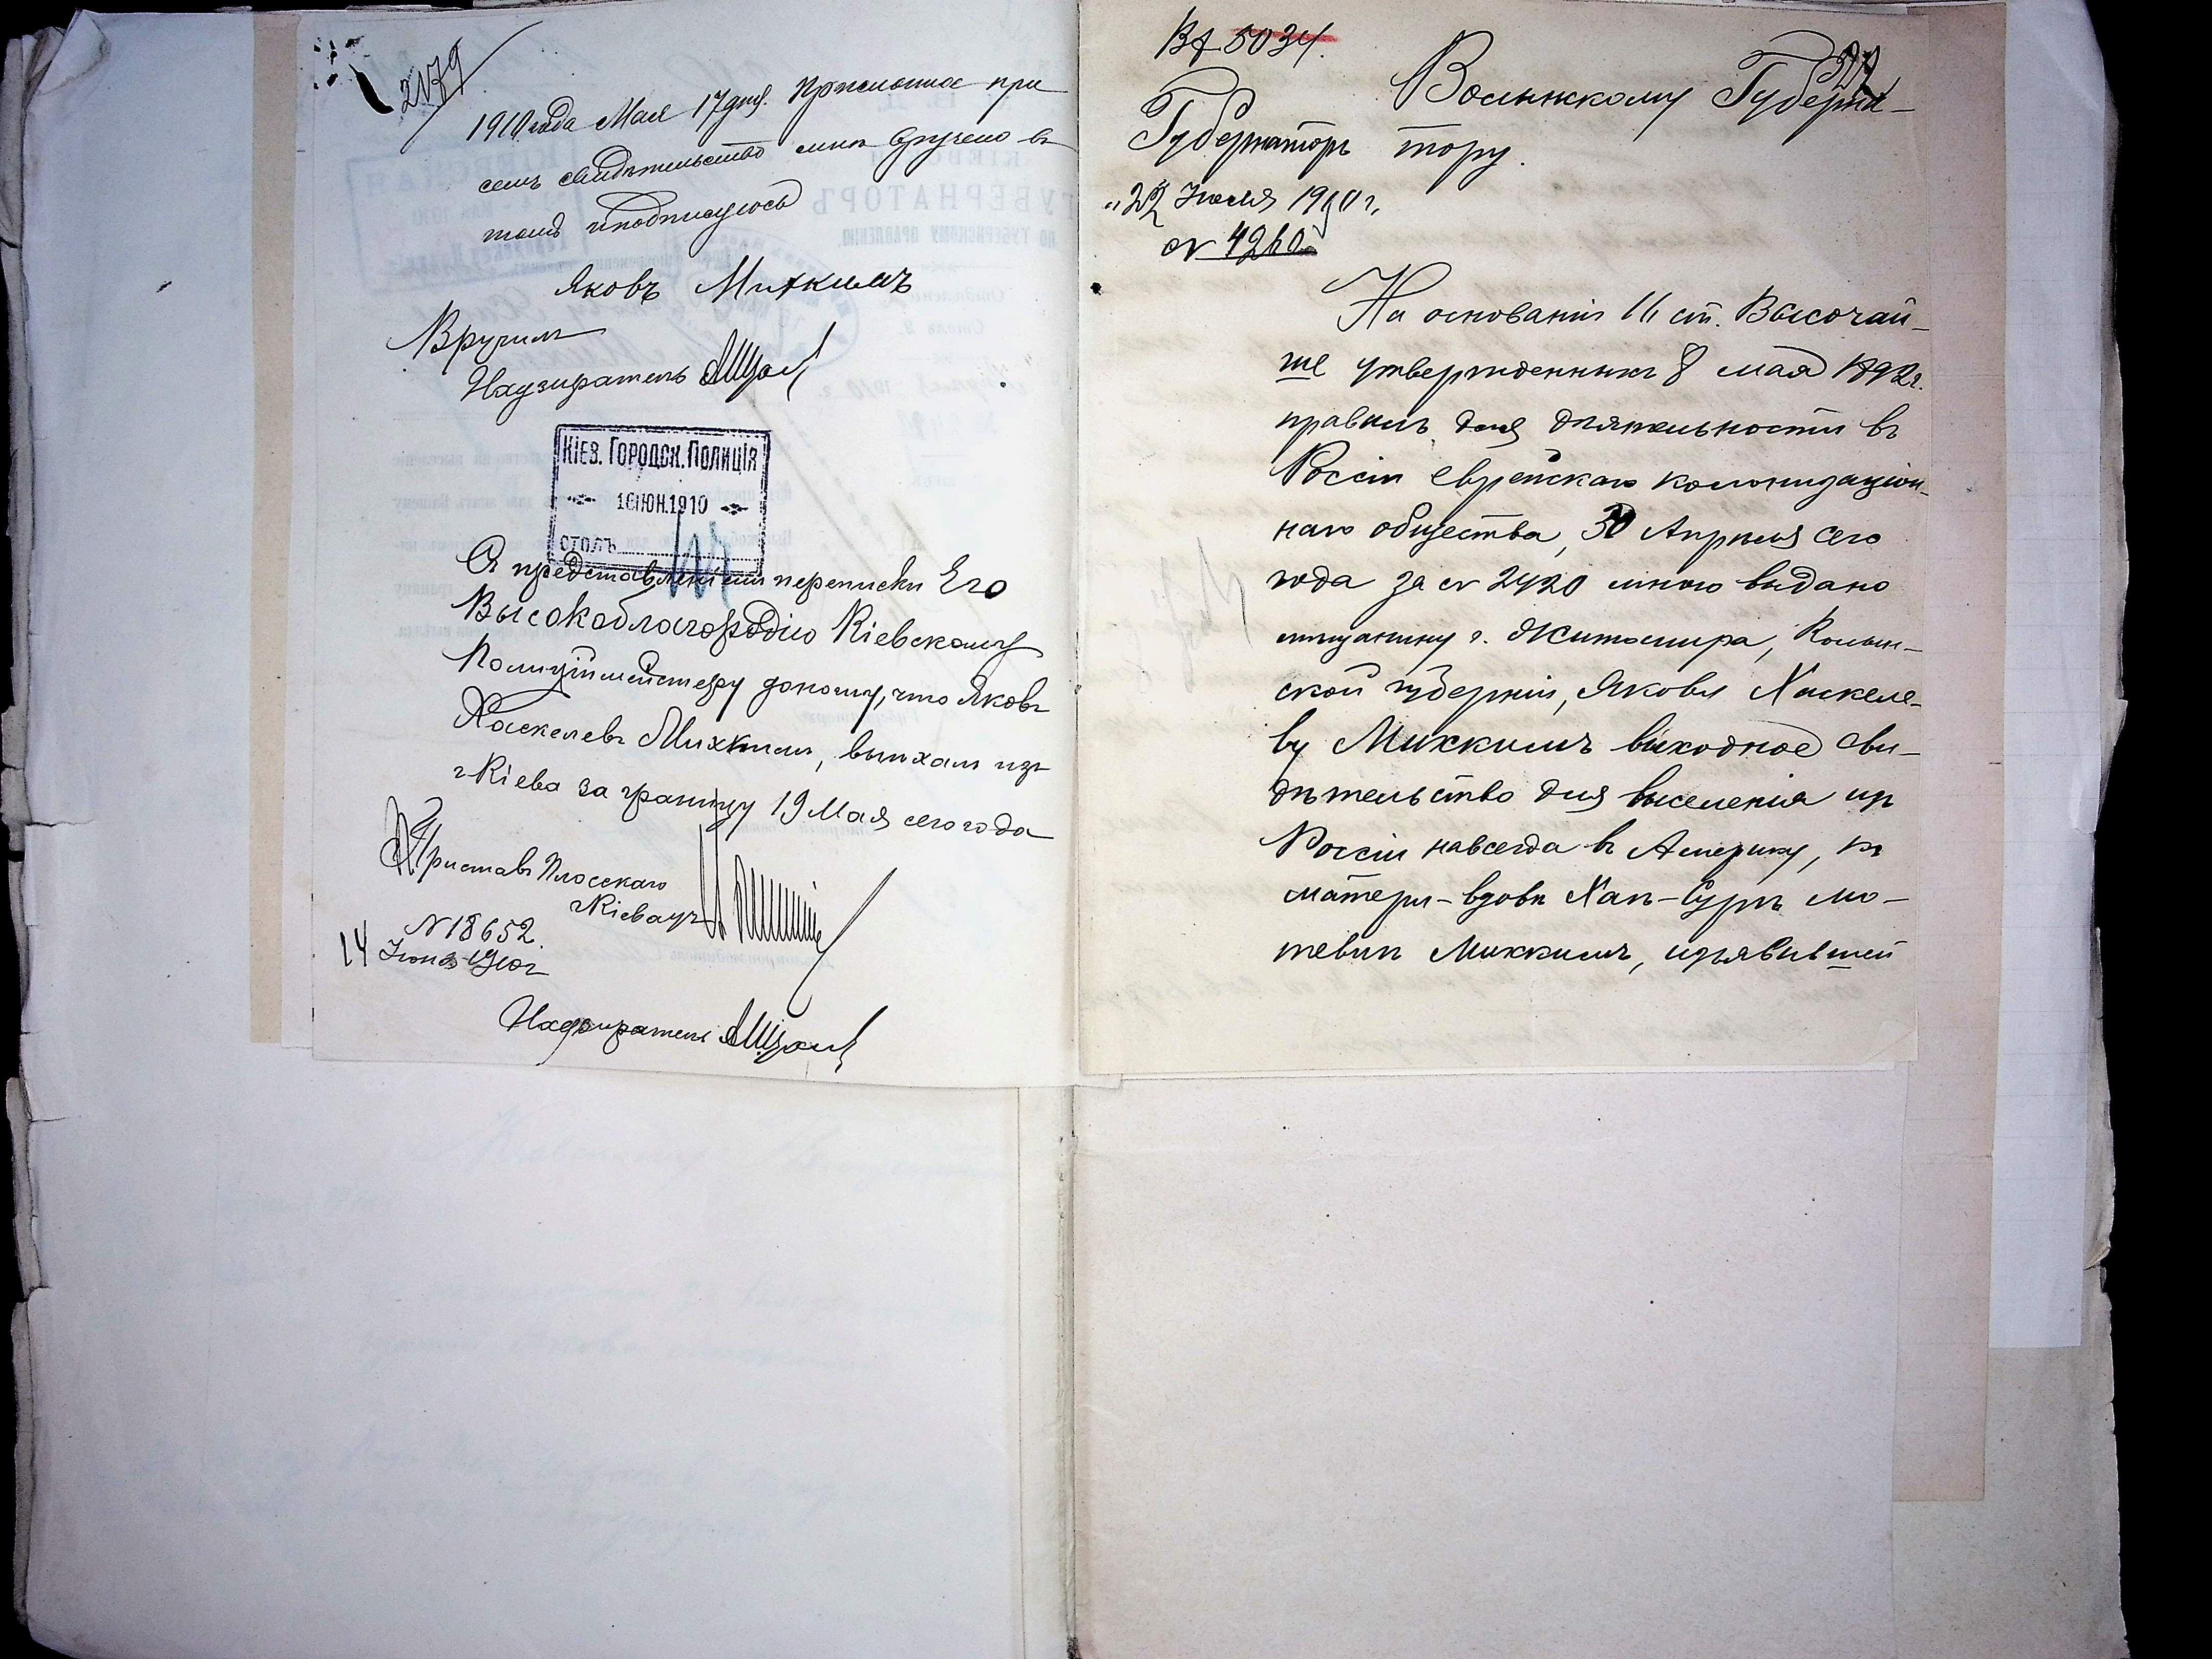 2179
1910 года Мая 17 дня. Приложенное при
семъ свидѣтельство мнѣ вручено въ
томъ и подписуюсь
Яковъ Михкилъ
Вручилъ
Надзиратель
Кіев. Городск. Полиція
16 ІЮН. 1910
столъ
Съ представленіемъ переписки Его
Высокоблагородію Кіевскому
Полиціймейстеру доношу, что Яковъ
Хаскелевъ Михкилъ, выѣхалъ изъ
г Кіева за границу 19 Мая сего года
Приставъ Плосскаго
г Кіева уч
N 18652.
14 Іюня 1910 г
Надзиратель
Вх 5034.
Волынскому Губерна-
Губернаторъ тору.
"22 Іюля 1910 г.
№ 4260
На основаніи 11 ст. Высочай-
ше утвержденныхъ 8 мая 1892 г.
правилъ для дѣятельности въ
Россіи еврейскаго колонизаціон-
наго общества, 30 Апрѣля сего
года за № 2420 мною выдано
мѣщанину г. Житомира, Волын-
ской губерніи, Якову Хаскеле-
ву Михкилъ выходное сви-
дѣтельство для выселенія изъ
Россіи навсегда въ Америку, къ
матери-вдовѣ Хаѣ-Сурѣ Мо-
тевнѣ Михкилъ, изъявившей